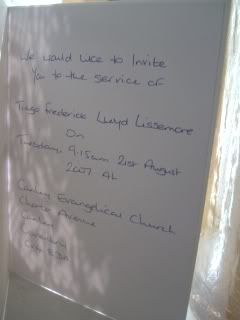 We would like to Invite
You to the service of
Tiago Frederick Lloyd Lissemore
On
Tuesday, 9.15am 21st August
2007 At
Evangelical Church
Avenue